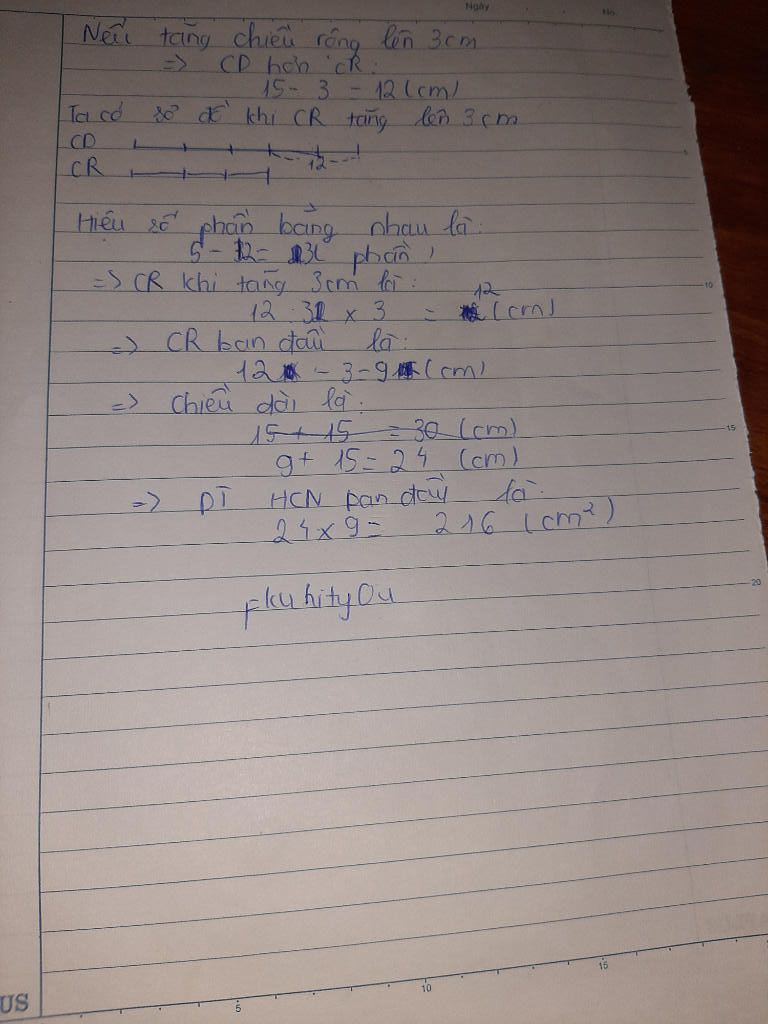 Ngày
No.
Nếu tăng chiều rộng lên 3cm
=> CD hơn CR:
15 - 3 = 12 (cm)
Ta có sơ đồ khi CR tăng lên 3cm
CD
12
CR
Hiệu số phần bằng nhau là:
5 - 2 = 3 phần
=> CR khi tăng 3cm là:
12 : 3 x 3 = 12 (cm)
=> CR ban đầu là:
12 - 3 = 9 (cm)
=> Chiều dài là:
15 + 15 = 30 (cm)
9 + 15 = 24 (cm)
=> DT HCN ban đầu là:
24 x 9 = 216 (cm²)
FkuhityOu
5
10
15
20
US
5
10
15